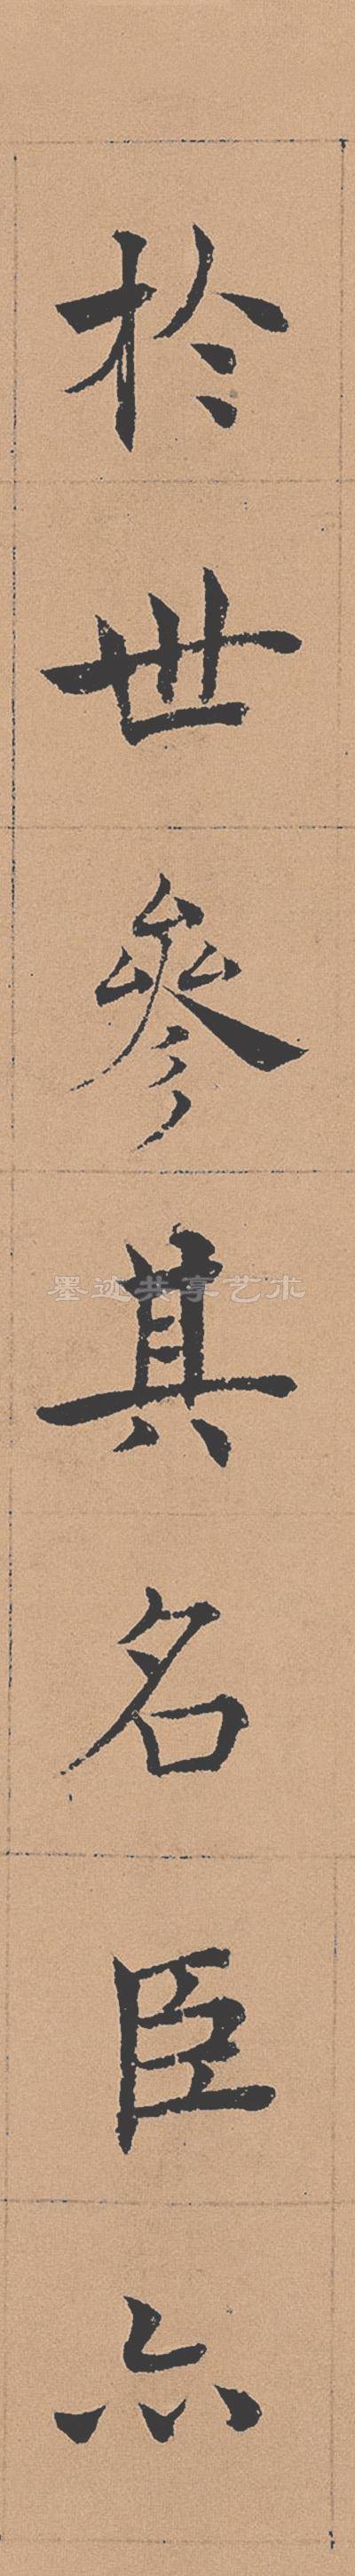 於世參其名臣亦
墨迹共享艺术